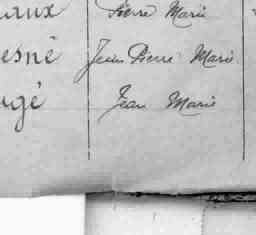 aux Pierre Marie
esné Jean Pierre Marie
ugé Jean Marie